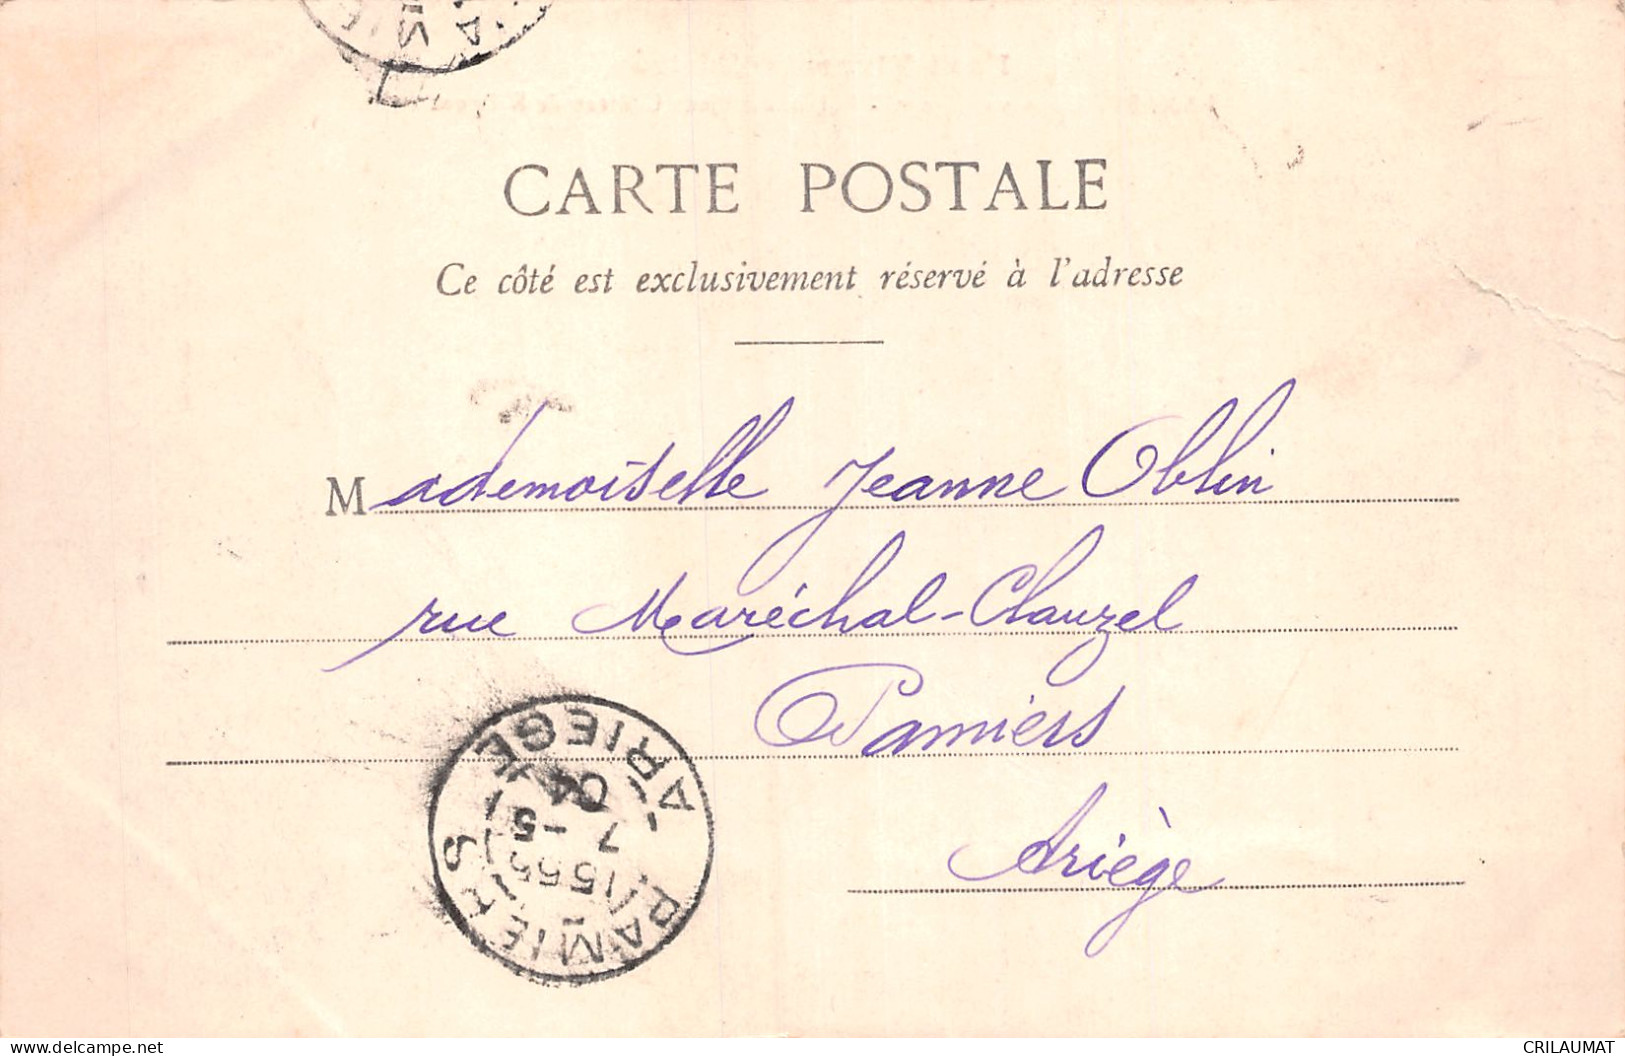 CARTE POSTALE
Ce côté est exclusivement réservé à l'adresse
Mademoiselle Jeanne Oblin
rue Maréchal-Clauzel
Pamiers
Ariège
PAMIERS - ARIEGE
7 -5
04
delcampe.net
CRILAUMAT